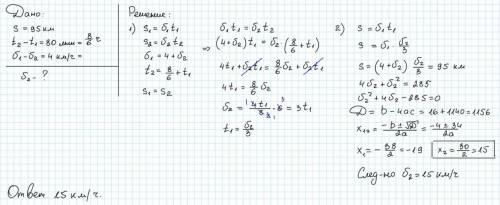 Дано:
S = 95 км
t₂ - t₁ = 80 мин = 8/6 ч
υ₁ - υ₂ = 4 км/ч =
υ₂ - ?
Решение:
1) S₁ = υ₁t₁
S₂ = υ₂t₂
υ₁ = 4 + υ₂
t₂ = 8/6 + t₁
S₁ = S₂
υ₁t₁ = υ₂t₂
⇒ (4 + υ₂)t₁ = υ₂ · (8/6 + t₁)
4t₁ + υ₂t₁ = 8/6 υ₂ + υ₂t₁
4t₁ = 8/6 υ₂
υ₂ = 4t₁/8 · 6 = 3t₁
t₁ = υ₂/3
2) S = υ₁t₁
S = υ₁ · υ₂/3
S = (4 + υ₂) υ₂/3 = 95 км
4υ₂ + υ₂² = 285
υ₂² + 4υ₂ - 285 = 0
D = b - 4ac = 16 + 1140 = 1156
x₁,₂ = (-b ± √D)/2a = (-4 ± 34)/2
x₁ = -38/2 = -19 x₂ = 30/2 = 15
След-но υ₂ = 15 км/ч
Ответ 15 км/ч.